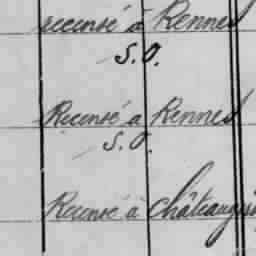 recensé à Rennes
S.O.
Recensé à Rennes
S.O.
Recensé à